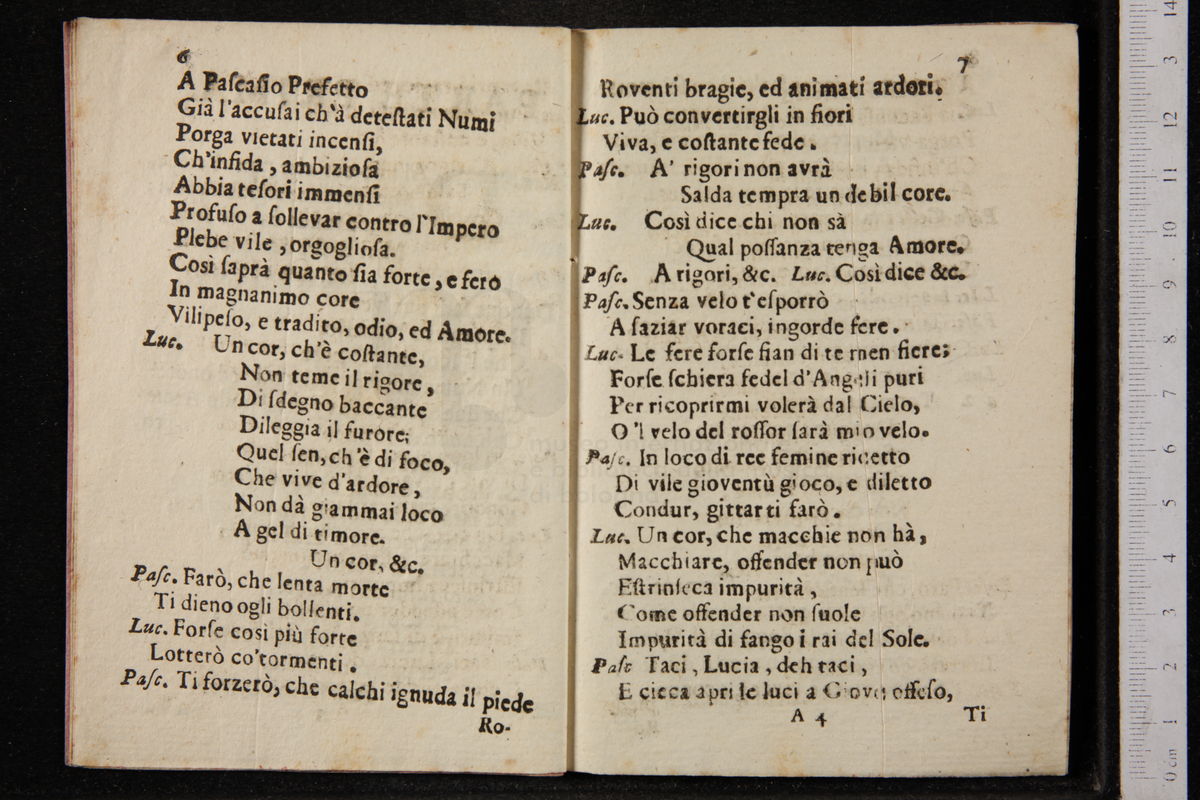 6
A Paſcaſio Prefetto
Già l'accuſai ch'à deteſtati Numi
Porga vietati incenſi,
Ch'infida, ambizioſa
Abbia teſori immenſi
Profuſo a ſollevar contro l'Impero
Plebe vile, orgoglioſa.
Così ſaprà quanto ſia forte, e fero
In magnanimo core
Vilipeſo, e tradito, odio, ed Amore.
Luc. Un cor, ch'è coſtante,
Non teme il rigore,
Di ſdegno baccante
Dileggia il furore;
Quel ſen, ch'è di foco,
Che vive d'ardore,
Non dà giammai loco
A gel di timore.
Un cor, &c.
Paſc. Farò, che lenta morte
Ti dieno ogli bollenti.
Luc. Forſe così più forte
Lotterò co'tormenti.
Paſc. Ti forzerò, che calchi ignuda il piede
Ro-
7
Roventi bragie, ed animati ardori.
Luc. Può convertirgli in fiori
Viva, e coſtante fede.
Paſc. A' rigori non avrà
Salda tempra un debil core.
Luc. Così dice chi non sà
Qual poſſanza tenga Amore.
Paſc. A rigori, &c. Luc. Così dice &c.
Paſc. Senza velo t'eſporrò
A ſaziar voraci, ingorde fere.
Luc. Le fere forſe fian di te men fiere;
Forſe ſchiera fedel d'Angeli puri
Per ricoprirmi volerà dal Cielo,
O 'l velo del roſſor ſarà mio velo.
Paſc. In loco di ree femine ricetto
Di vile gioventù gioco, e diletto
Condur, gittar ti farò.
Luc. Un cor, che macchie non hà,
Macchiare, offender non può
Eſtrinſeca impurità,
Come offender non ſuole
Impurità di fango i rai del Sole.
Paſc Taci, Lucia, deh taci,
E cieca apri le luci a Giove offeſo,
A 4
Ti
0 cm 1 2 3 4 5 6 7 8 9 10 11 12 3 14